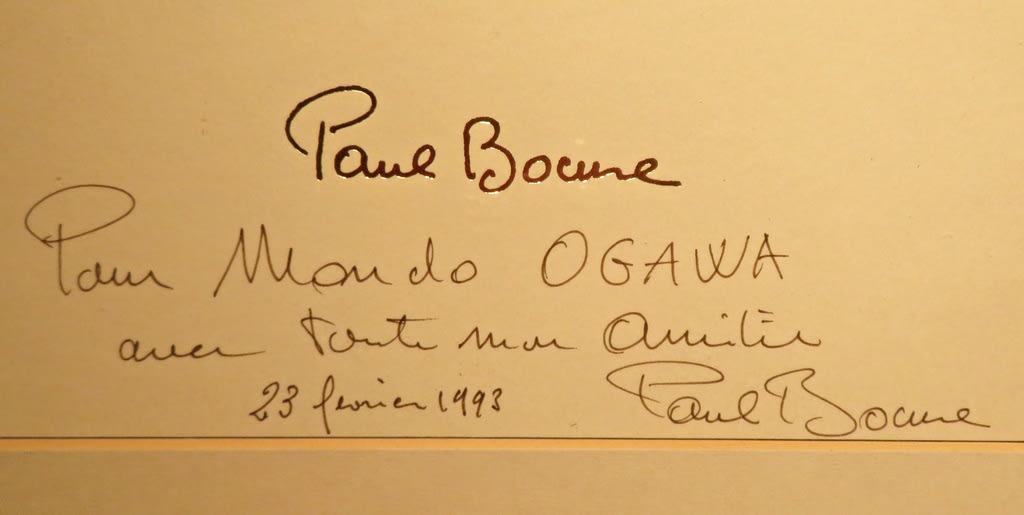 Paul Bocuse
Pour Mondo OGAWA
avec toute mon amitié
23 février 1993 Paul Bocuse